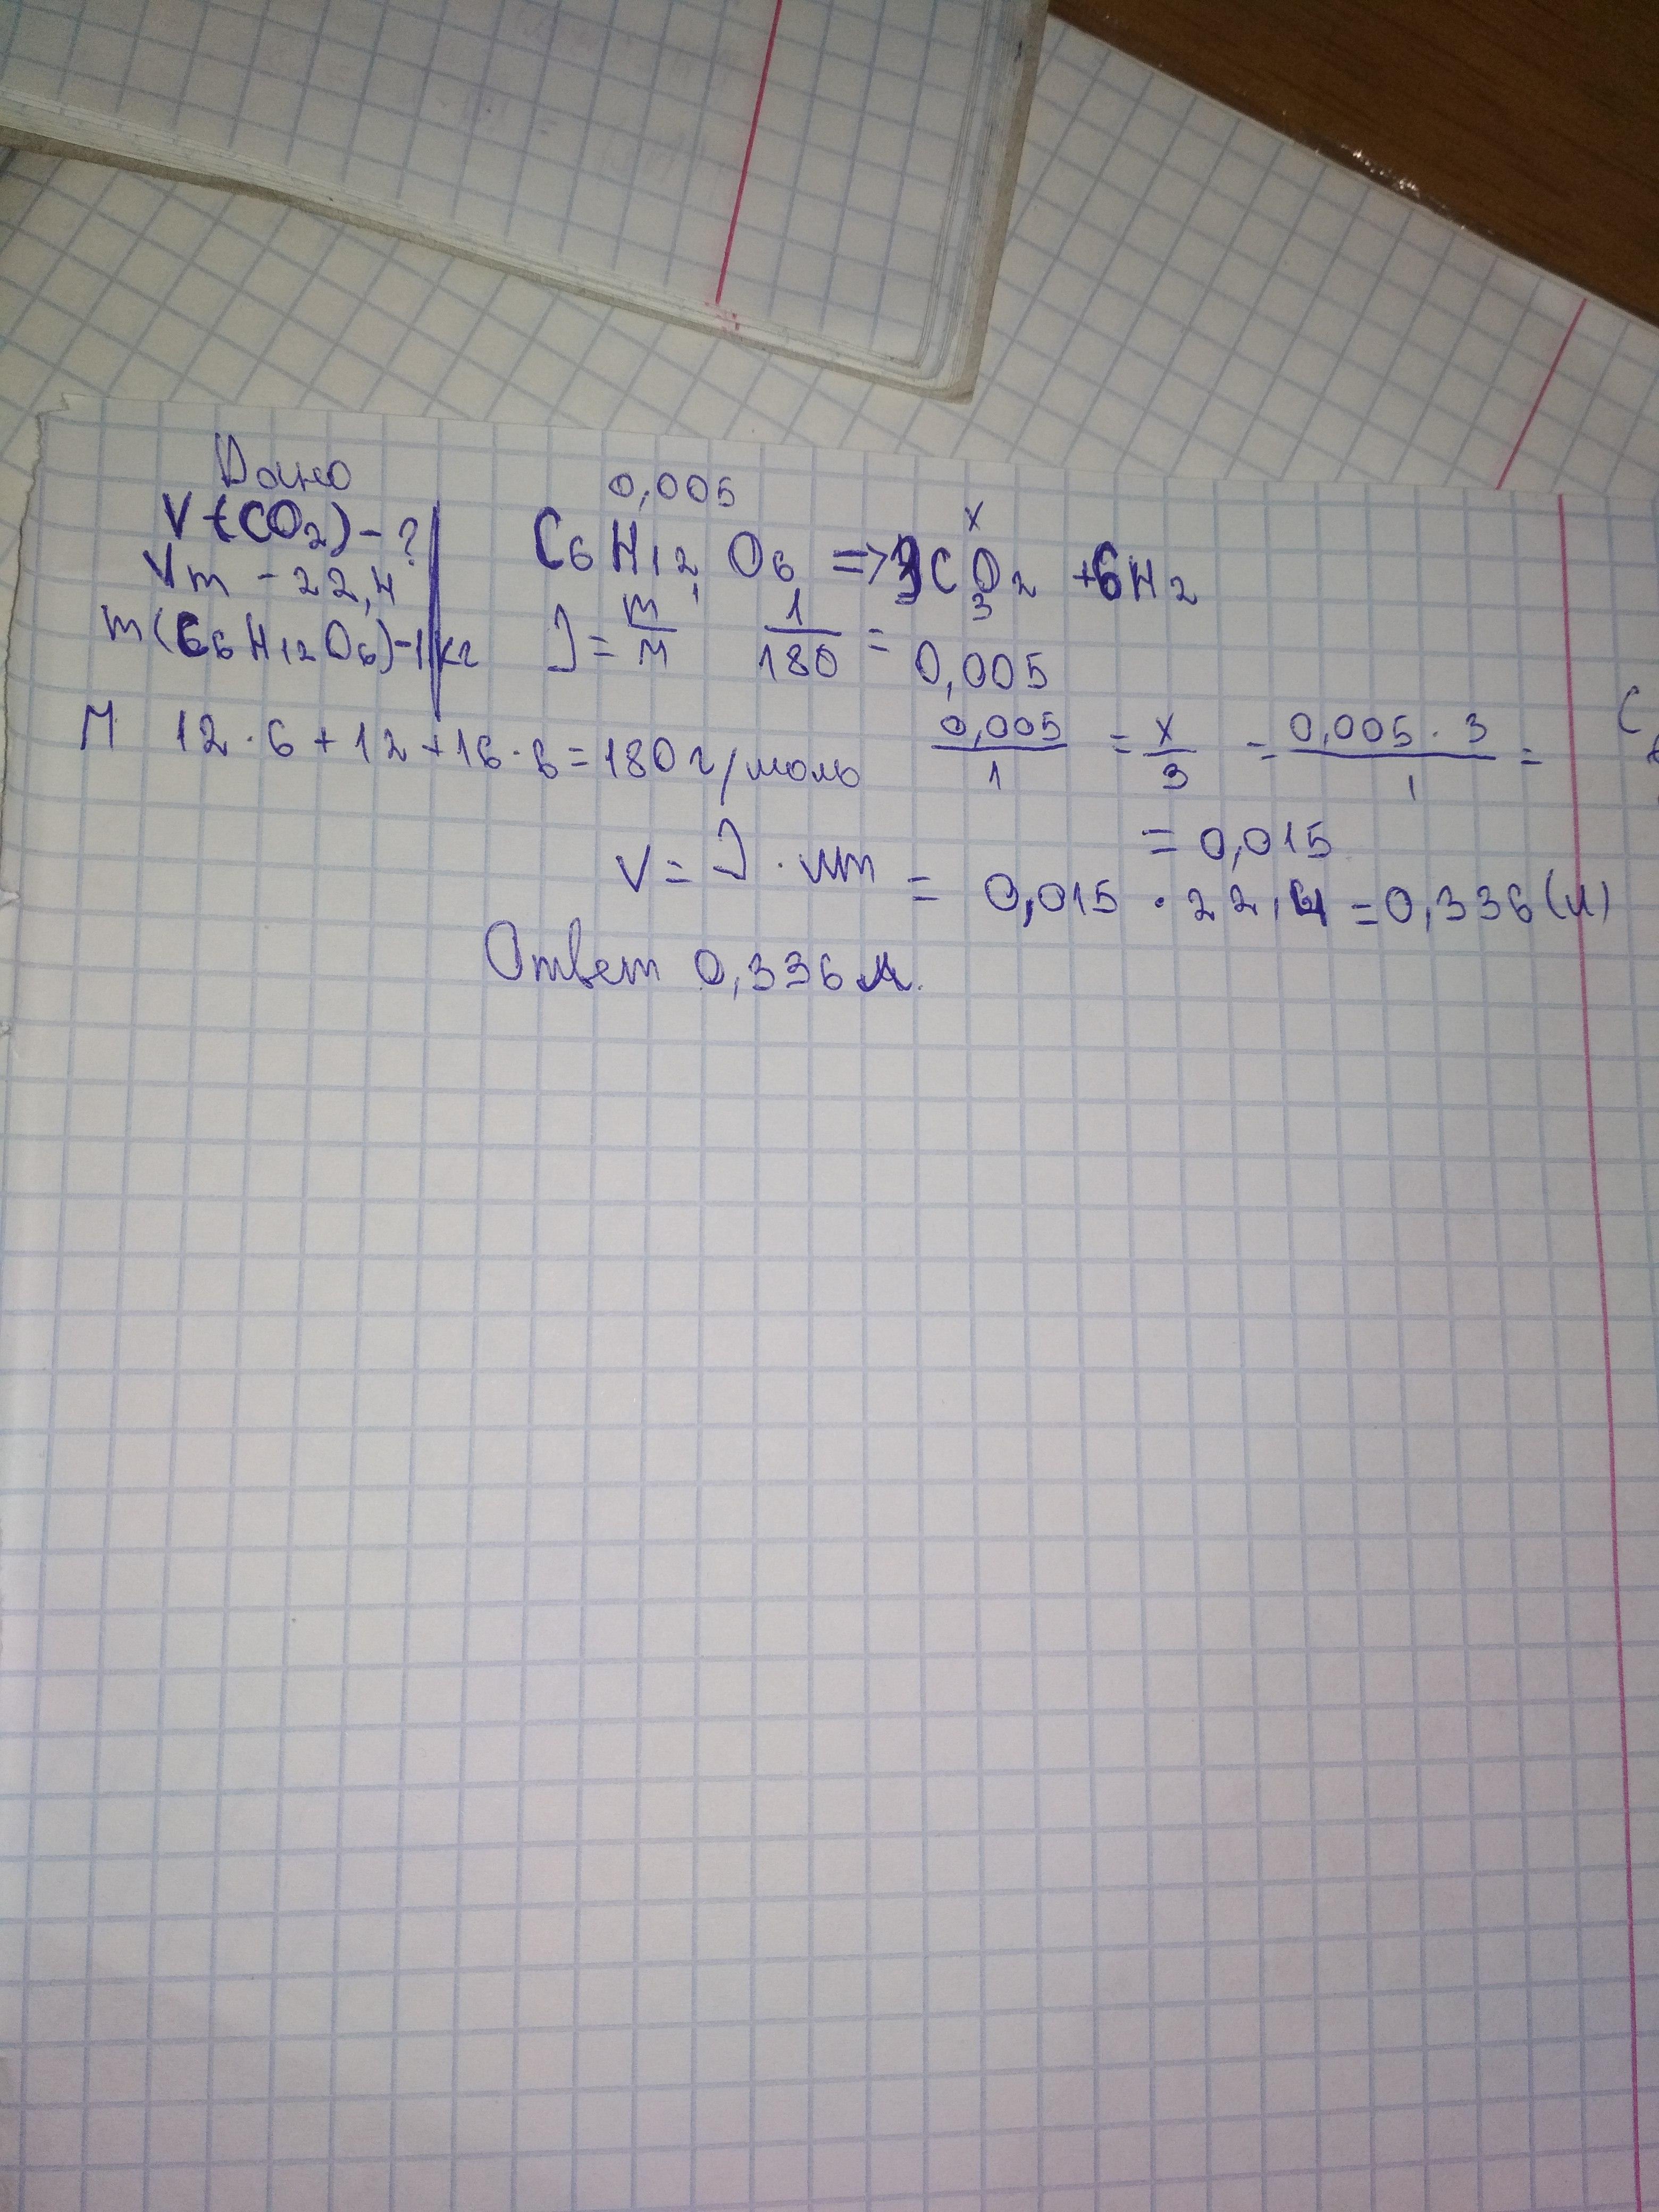 Дано
V(CO2) - ?
Vm - 22,4
m(C6H12O6) - 1 кг
0,005 x
C6H12O6 => 3CO2 + 6H2
1 3
J = m/M 1/180 = 0,005
M 12·6+12+16·6=180 г/моль
0,005/1 = x/3 = 0,005·3/1 =
= 0,015
V = J · Vm = 0,015 · 22,4 = 0,336 (л)
Ответ 0,336 л.